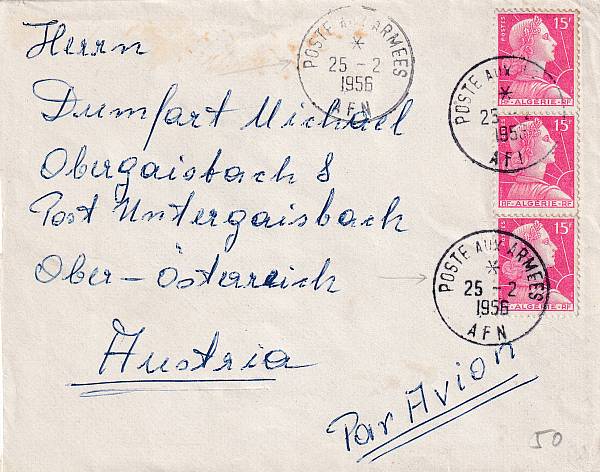 Herrn
Dumfart Michael
Obergaisbach 8
Post Untergaisbach
Ober-Österreich
Austria
Par Avion
50
POSTE AUX ARMEES
*
25 - 2
1956
AFN
POSTES 15F
RF-ALGÉRIE-RF
POSTE AUX
*
25
1956
AFN
15F
RF-ALGÉRIE-RF
15F
RF-ALGÉRIE-RF
POSTE AUX ARMEES
*
25 - 2
1956
AFN